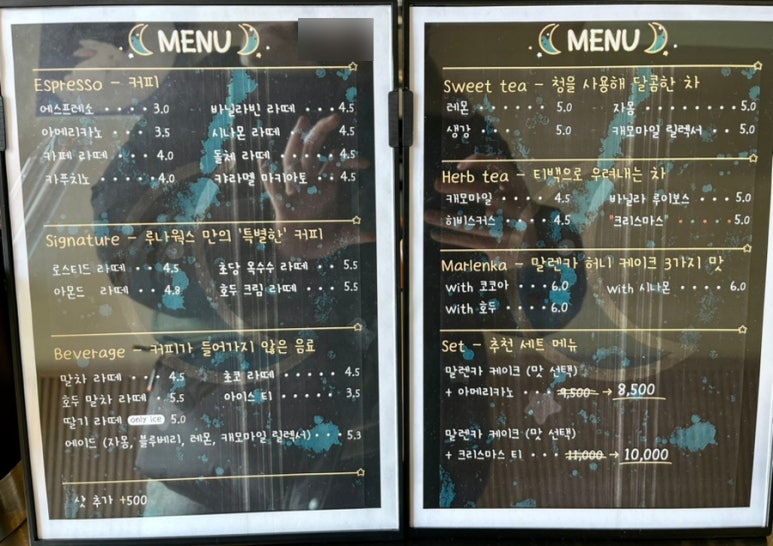 MENU
Espresso - 커피
에스프레소 · · · 3.0 바닐라빈 라떼 · · · 4.5
아메리카노 · · · 3.5 시나몬 라떼 · · · · 4.5
카페 라떼 · · · · 4.0 돌체 라떼 · · · · · 4.5
카푸치노 · · · · 4.0 카라멜 마키아토 · · 4.5
Signature - 루나웍스 만의 '특별한' 커피
로스티드 라떼 · · 4.5 초당 옥수수 라떼 · · 5.5
아몬드 라떼 · · 4.8 호두 크림 라떼 · · · 5.5
Beverage - 커피가 들어가지 않은 음료
말차 라떼 · · · 4.5 초코 라떼 · · · · 4.5
호두 말차 라떼 · · 5.5 아이스 티 · · · · 3.5
딸기 라떼 only ice 5.0
에이드 (자몽, 블루베리, 레몬, 캐모마일 릴렉서) · · · 5.3
샷 추가 +500
MENU
Sweet tea - 청을 사용해 달콤한 차
레몬 · · · · · 5.0 자몽 · · · · · · · · 5.0
생강 · · · · 5.0 캐모마일 릴렉서 · · 5.0
Herb tea - 티백으로 우려내는 차
캐모마일 · · · · 4.5 바닐라 루이보스 · · · 5.0
히비스커스 · · · 4.5 "크리스마스" · · · · · 5.0
Marlenka - 말렌카 허니 케이크 3가지 맛
with 코코아 · · · 6.0 with 시나몬 · · · · 6.0
with 호두 · · · · 6.0
Set - 추천 세트 메뉴
말렌카 케이크 (맛 선택)
+ 아메리카노 · · · 9,500 → 8,500
말렌카 케이크 (맛 선택)
+ 크리스마스 티 · · · 11,000 → 10,000